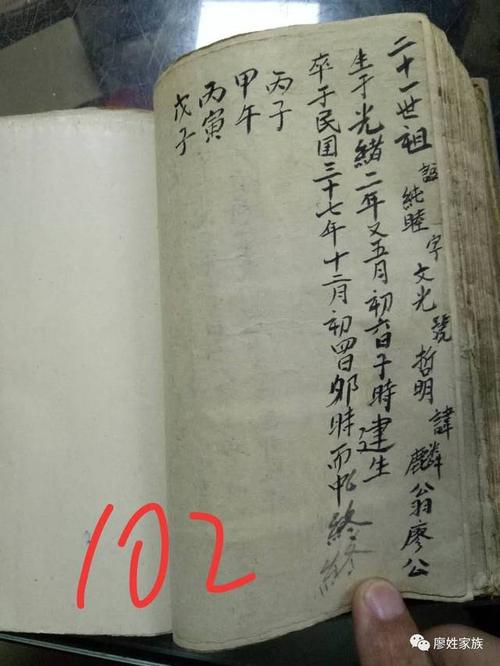 二十一世祖諡純睦字文光號哲明諱麟翁廖公
生于光緒二年又五月初六日子時建生
卒于民国三十七年十二月初四日卯時而 終終
丙子
甲午
丙寅
戊子
102
廖姓家族